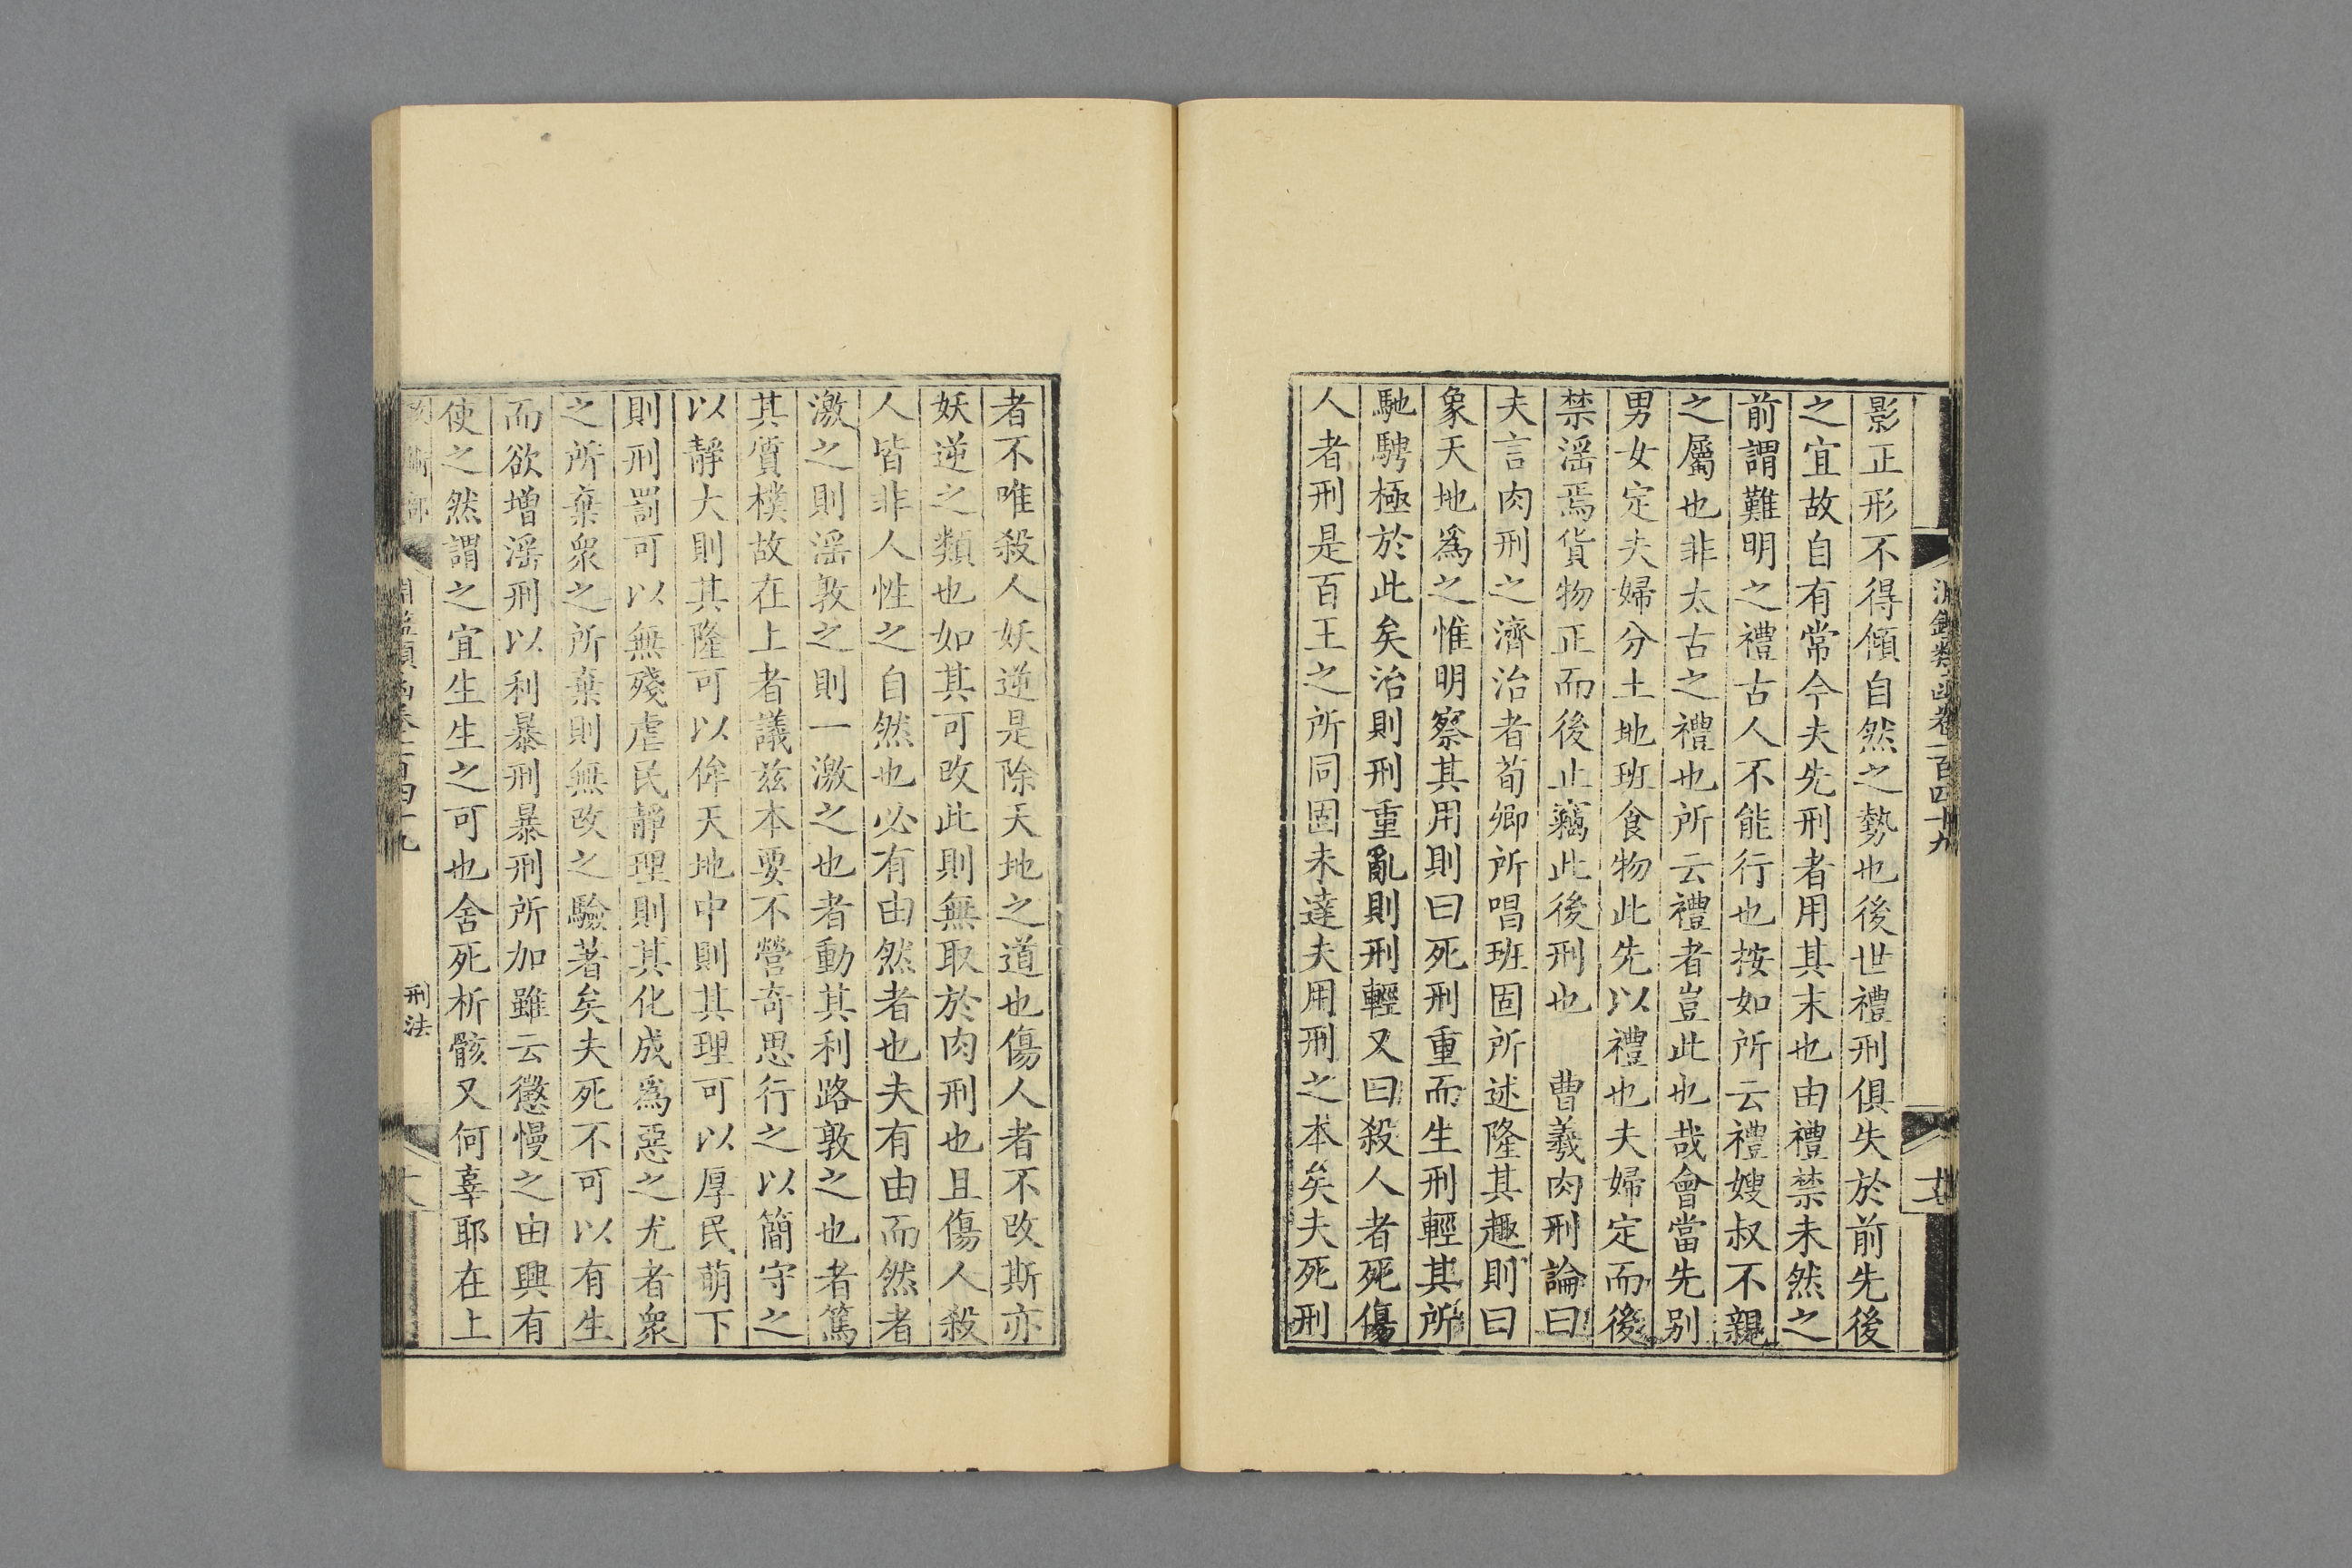 淵鑑類函卷一百四十九
影正形不得傾自然之勢也後世禮刑俱失於前先後
之宜故自有常今夫先刑者用其末也由禮禁未然之
前謂難明之禮古人不能行也按如所云禮嫂叔不親
之屬也非太古之禮也所云禮者豈此也哉會當先别
男女定夫婦分土地班食物此先以禮也夫婦定而後
禁淫焉貨物正而後止竊此後刑也　曹羲肉刑論曰
夫言肉刑之濟治者荀卿所唱班固所述隆其趣則曰
象天地爲之惟明察其用則曰死刑重而生刑輕其所
馳騁極於此矣治則刑重亂則刑輕又曰殺人者死傷
人者刑是百王之所同固未達夫用刑之本矣夫死刑
者不唯殺人妖逆是除天地之道也傷人者不改斯亦
妖逆之類也如其可改此則無取於肉刑也且傷人殺
人皆非人性之自然也必有由然者也夫有由而然者
激之則淫敦之則一激之也者動其利路敦之也者篤
其質樸故在上者議兹本要不營奇思行之以簡守之
以靜大則其隆可以侔天地中則其理可以厚民萌下
則刑罰可以無殘虐民靜理則其化成爲惡之尤者衆
之所棄衆之所棄則無改之驗著矣夫死不可以有生
而欲增淫刑以利暴刑暴刑所加雖云懲慢之由興有
使之然謂之宜生生之可也舍死析骸又何辜耶在上
淵鑑類函卷一百四十九
刑法